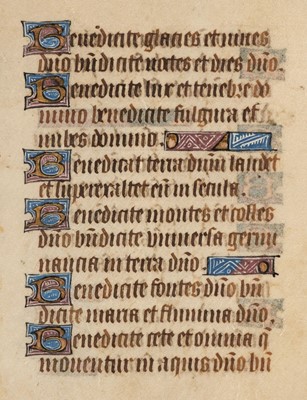 Benedicite glacies et nives
dño bñdicite noctes et dies dño.
Benedicite lux et tenebre do
mino benedicite fulgura et
nubes domino.
Benedicat terra dñm laudet
et superexaltet eũ in secula.
Benedicite montes et colles
dño bñdicite universa germi
nancia in terra dño
Benedicite fontes dño bñ
dicite maria et flumina dño.
Benedicite cete et omnia q̃
moventur in aquis dño bñ